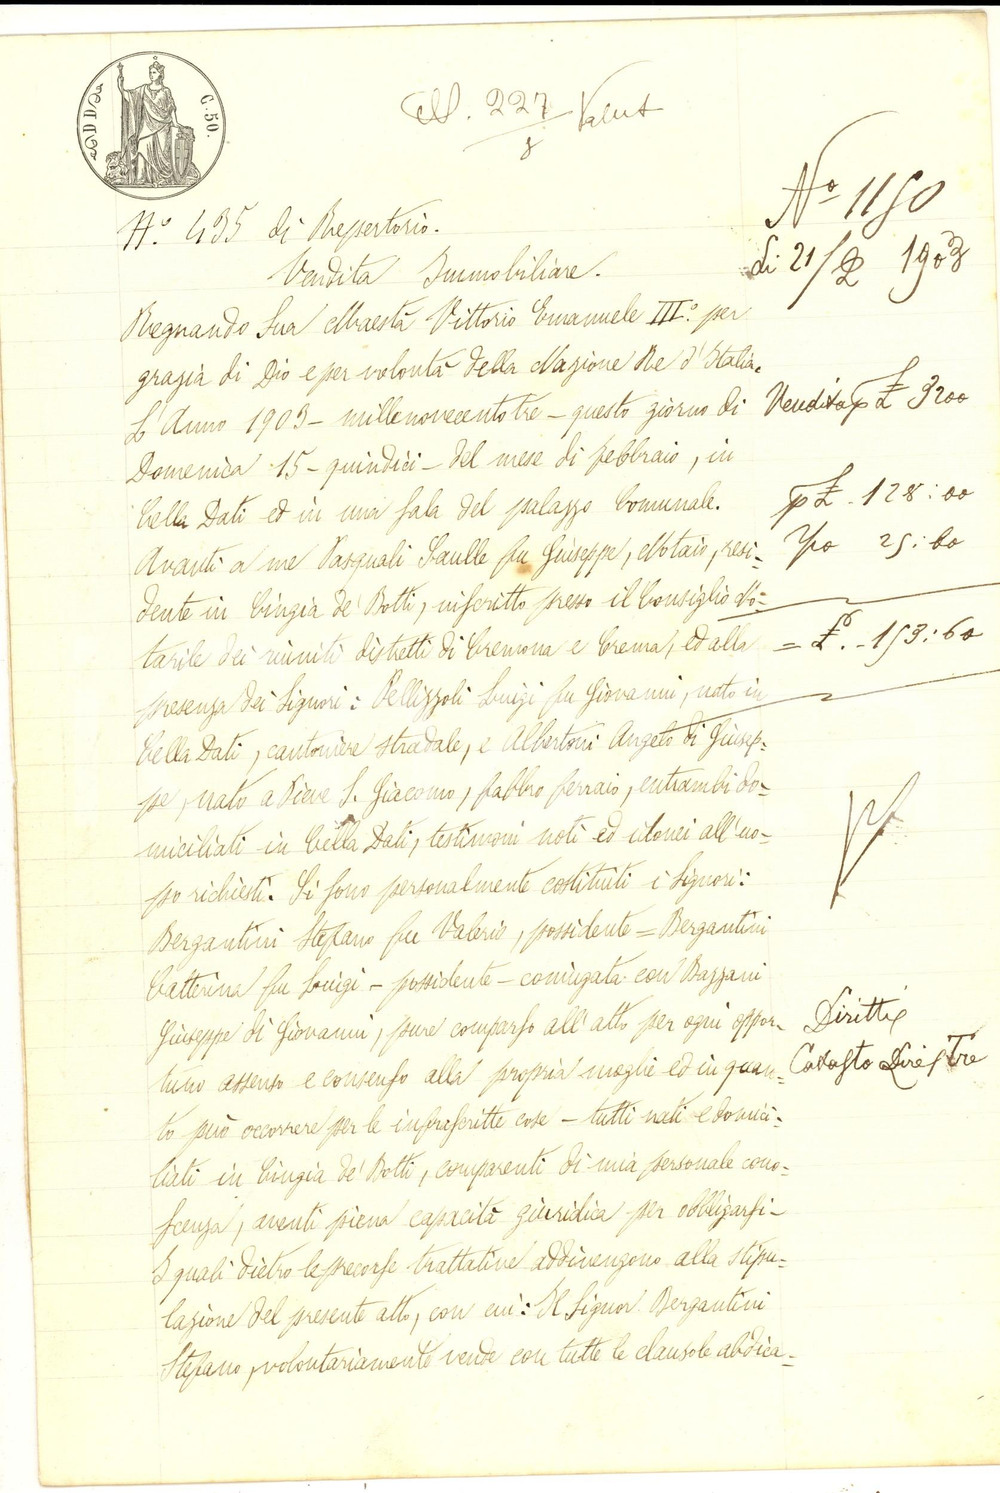 C. 50.
N. 227 Valut
8
N.° 1150
di 21/2 1903
N.° 435 di Repertorio.
Vendita Immobiliare.
Regnando Sua Maestà Vittorio Emanuele III.° per
grazia di Dio e per volontà della Nazione Re d'Italia.
L'Anno 1903 – millenovecentotre – questo giorno di
Domenica 15 – quindici – del mese di febbraio, in
Cella Dati ed in una sala del palazzo Comunale.
Avanti a me Pasquali Saulle fu Giuseppe, Notaio, resi-
dente in Cingia de' Botti, inscritto presso il Consiglio No-
tarile dei riuniti distretti di Cremona e Crema, ed alla
presenza dei Signori: Pellizzoli Luigi fu Giovanni, nato in
Cella Dati, cantoniere stradale, e Albertoni Angelo di Giusep-
pe, nato a Pieve S. Giacomo, fabbro ferraio, entrambi do-
miciliati in Cella Dati, testimoni noti ed idonei all'uo-
po richiesti. Si sono personalmente costituiti i Signori:
Bergantini Stefano fu Valerio, possidente = Bergantini
Catterina fu Luigi – possidente – coniugata con Bazzani
Giuseppe di Giovanni, pure comparso all'atto per ogni oppor-
tuno assenso e consenso alla propria moglie ed in quan-
to può occorrere per le infrascritte cose – tutti nati e domici-
liati in Cingia de' Botti, comparenti di mia personale cono-
scenza, aventi piena capacità giuridica per obbligarsi –
I quali dietro le precorse trattative addivengono alla stipu-
lazione del presente atto, con cui: Il Signor Bergantini
Stefano, volontariamente vende con tutte le clausole abdica-
Vendita p £ 3200
p £. 128:00
25:60
= £. 153:60
Diritti
Catasto Lire Tre